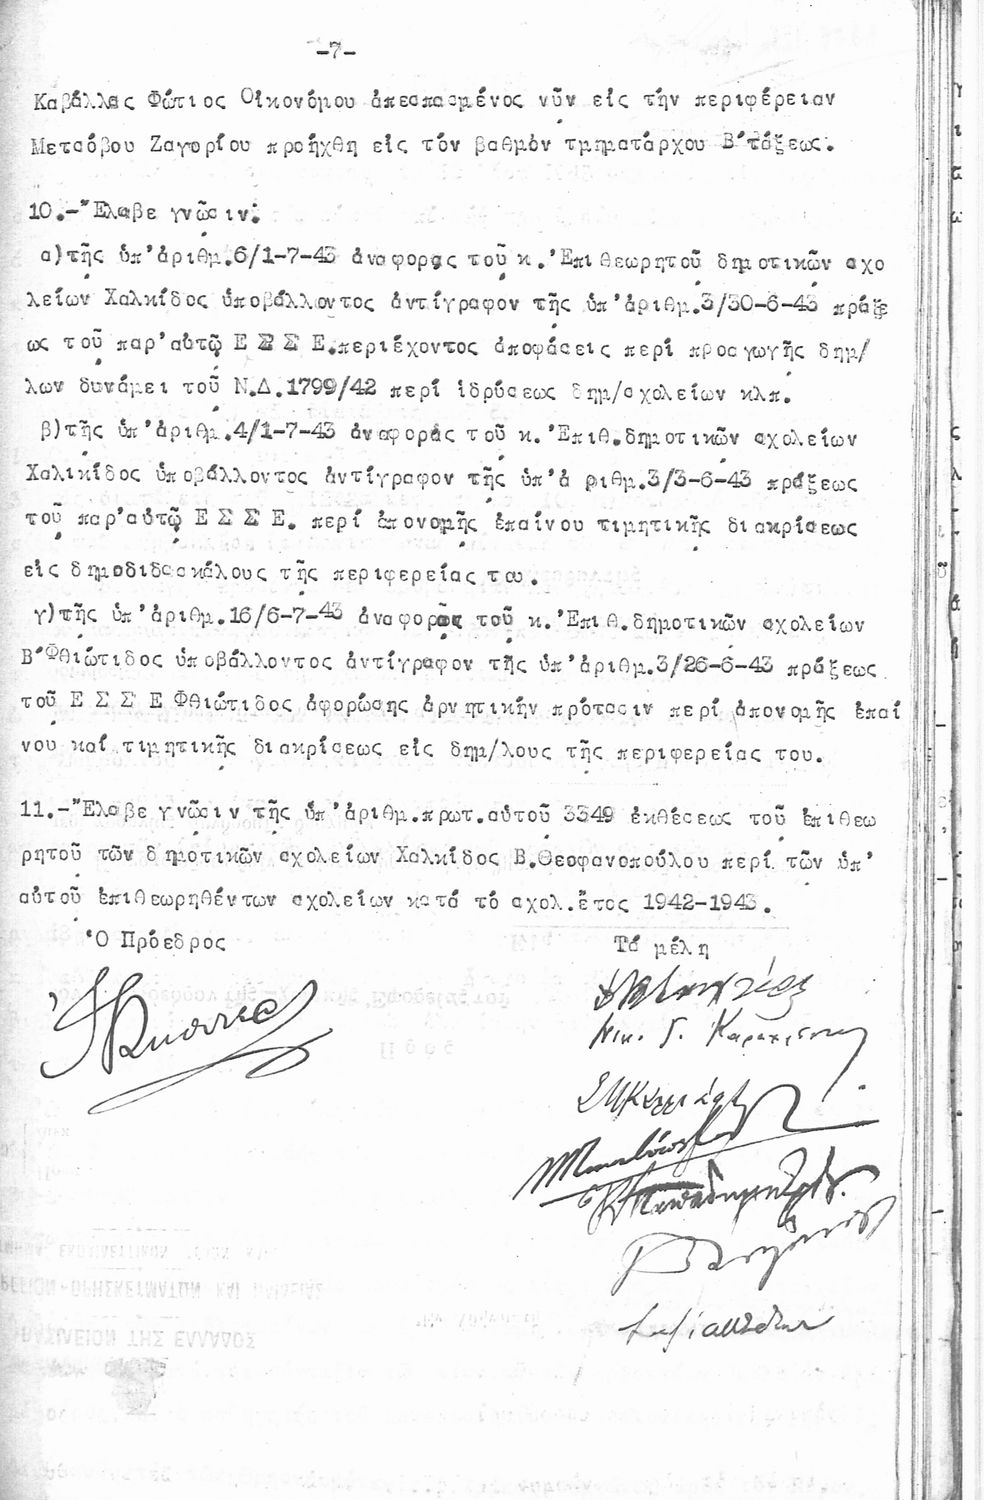 -7-
Καβάλλας Φώτιος Οἰκονόμου ἀπεσπασμένος νῦν εἰς τήν περιφέρειαν
Μετσόβου Ζαγορίου προήχθη εἰς τόν βαθμόν τμηματάρχου Β΄τάξεως.
10.-Ἔλαβε γνῶσιν:
α)τῆς ὑπ'ἀριθμ.6/1-7-43 ἀναφορᾶς τοῦ κ.Ἐπιθεωρητοῦ δημοτικῶν σχο
λείων Χαλκίδος ὑποβάλλοντος ἀντίγραφον τῆς ὑπ'ἀριθμ.3/30-6-43 πράξε
ως τοῦ παρ'αὐτῷ Ε Σ Σ Ε.περιέχοντος ἀποφάσεις περί προαγωγῆς δημ/
λων δυνάμει τοῦ Ν.Δ.1799/42 περί ἱδρύσεως δημ/σχολείων κλπ.
β)τῆς ὑπ'ἀριθμ.4/1-7-43 ἀναφορᾶς τοῦ κ.Ἐπιθ.δημοτικῶν σχολείων
Χαλικίδος ὑποβάλλοντος ἀντίγραφον τῆς ὑπ'ἀ ριθμ.3/3-6-43 πράξεως
τοῦ παρ'αὐτῷ Ε Σ Σ Ε. περί ἀπονομῆς ἐπαίνου τιμητικῆς διακρίσεως
εἰς δημοδιδασκάλους τῆς περιφερείας του.
γ)τῆς ὑπ'ἀριθμ.16/6-7-43 ἀναφορᾶς τοῦ κ.Ἐπιθ.δημοτικῶν σχολείων
Β΄Φθιώτιδος ὑποβάλλοντος ἀντίγραφον τῆς ὑπ'ἀριθμ.3/26-6-43 πράξεως
τοῦ Ε Σ Σ Ε Φθιώτιδος ἀφορώσης ἀρνητικήν πρότασιν περί ἀπονομῆς ἐπαί
νου καί τιμητικῆς διακρίσεως εἰς δημ/λους τῆς περιφερείας του.
11.-Ἔλαβε γνῶσιν τῆς ὑπ'ἀριθμ.πρωτ.αὐτοῦ 3349 ἐκθέσεως τοῦ ἐπιθεω
ρητοῦ τῶν δημοτικῶν σχολείων Χαλκίδος Β.Θεοφανοπούλου περί τῶν ὑπ'
αὐτοῦ ἐπιθεωρηθέντων σχολείων κατά τό σχολ.ἔτος 1942-1943.
Ὁ Πρόεδρος
Τά μέλη
Νικ. Γ.